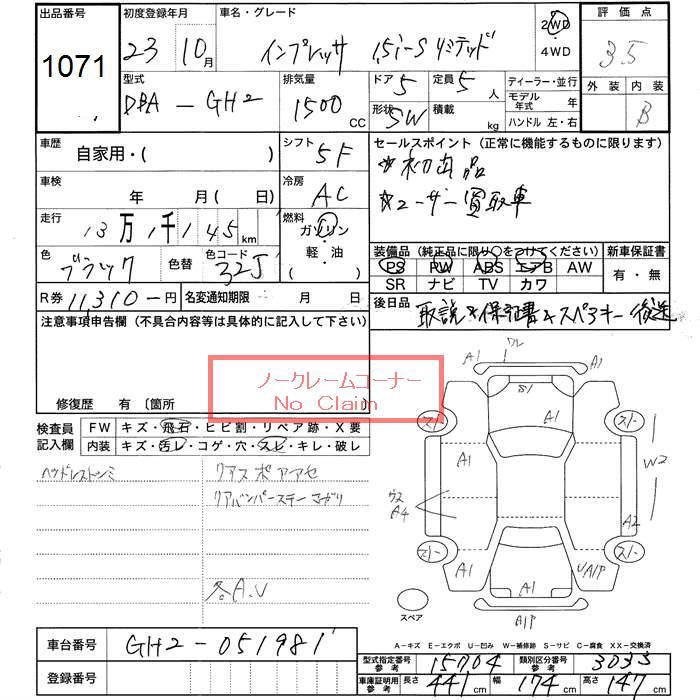 出品番号 初度登録年月 車名・グレード 2WD 評価点
1071 23 10月 インプレッサ 1.5i-S リミテッド ・4WD 3.5
型式 排気量 ドア 5 定員 5人 ディーラー・並行 外装 内装
DBA-GH2 1500cc 形状 SW 積載 kg モデル年式 年 B
ハンドル 左・右
車歴 自家用・( ) シフト 5F セールスポイント (正常に機能するものに限ります)
車検 年 月( 日) 冷房 AC *初出品
*ユーザー買取車
走行 13万1千145km 燃料 ガソリン
軽・油
( )
色 ブラック 色替 色コード 32J 装備品 (純正品に限り○をつけてください) 新車保証書
PS PW ABS エアB AW 有・無
SR ナビ TV カワ
R券 11,310-円 名変通期限 月 日 後日品 取説&保証書&スペアキー後送
注意事項申告欄 (不具合内容等は具体的に記入して下さい)
ノークレームコーナー
No Claim
修復歴 有 〔箇所 〕
検査員記入欄 FW キズ・飛石・ヒビ割・リペア跡・X要
内装 キズ・汚レ・コゲ・穴・スレ・キレ・破レ
ヘッドレストシミ
リアバンパーステーマガリ
各A.U
A1 ワレ A1
A1
A1 W2
A4 A2
A1 UA1P
A1
A1P
スペア
A-キズ E-エクボ U-凹み W-補修跡 S-サビ C-腐食 XX-交換済
車台番号 GH2-051981
登録番号
型式指定番号 参考 15704 類別区分番号 参考 3033
車庫証明用 参考 長さ 441cm 幅 174cm 高さ 147cm